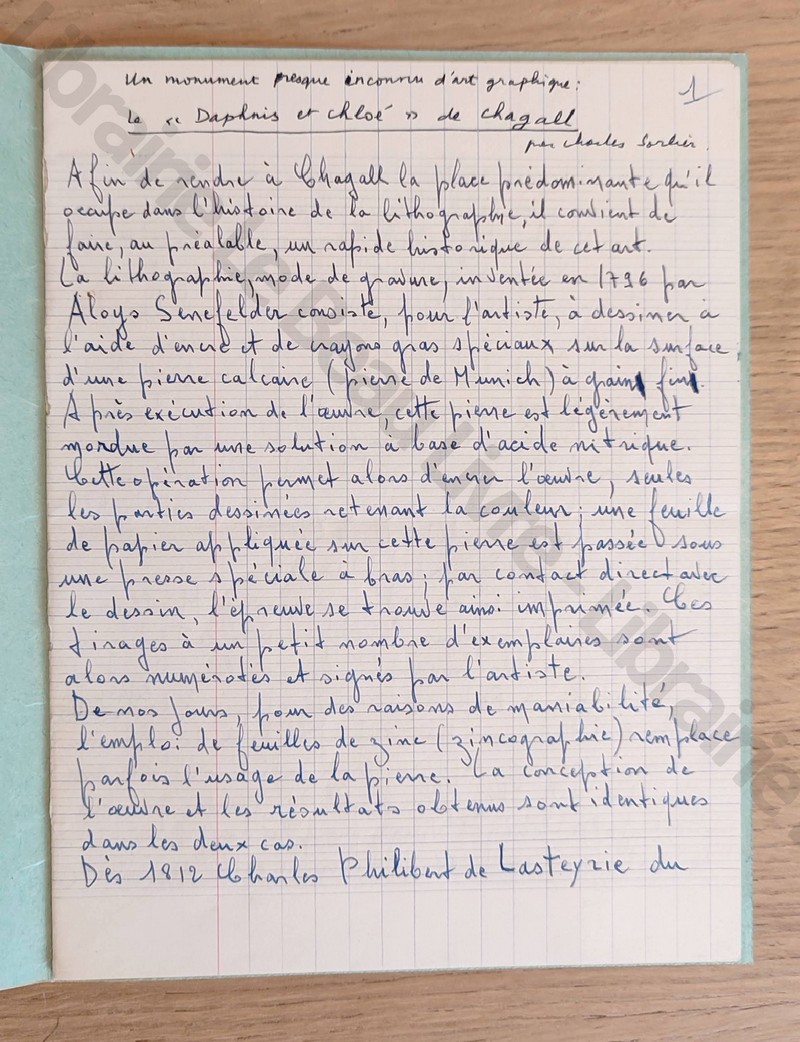 Un monument presque inconnu d'art graphique:
1
Le « Daphnis et Chloé » de Chagall
par Charles Sorlier.
Afin de rendre à Chagall la place prédominante qu'il
occupe dans l'histoire de la lithographie, il convient de
faire, au préalable, un rapide historique de cet art.
La lithographie, mode de gravure, inventée en 1796 par
Aloys Senefelder consiste, pour l'artiste, à dessiner à
l'aide d'encre et de crayons gras spéciaux sur la surface
d'une pierre calcaire (pierre de Munich) à grain fin.
Après exécution de l'œuvre, cette pierre est légèrement
mordue par une solution à base d'acide nitrique.
Cette opération permet alors d'encrer l'œuvre, seules
les parties dessinées retenant la couleur; une feuille
de papier appliquée sur cette pierre est passée sous
une presse spéciale à bras; par contact direct avec
le dessin, l'épreuve se trouve ainsi imprimée. Ces
tirages à un petit nombre d'exemplaires sont
alors numérotés et signés par l'artiste.
De nos jours, pour des raisons de maniabilité,
l'emploi de feuilles de zinc (zincographie) remplace
parfois l'usage de la pierre. La conception de
l'œuvre et les résultats obtenus sont identiques
dans les deux cas.
Dès 1812 Charles Philibert de Lasteyrie du
Librairie Le Beau Livre - Librairie